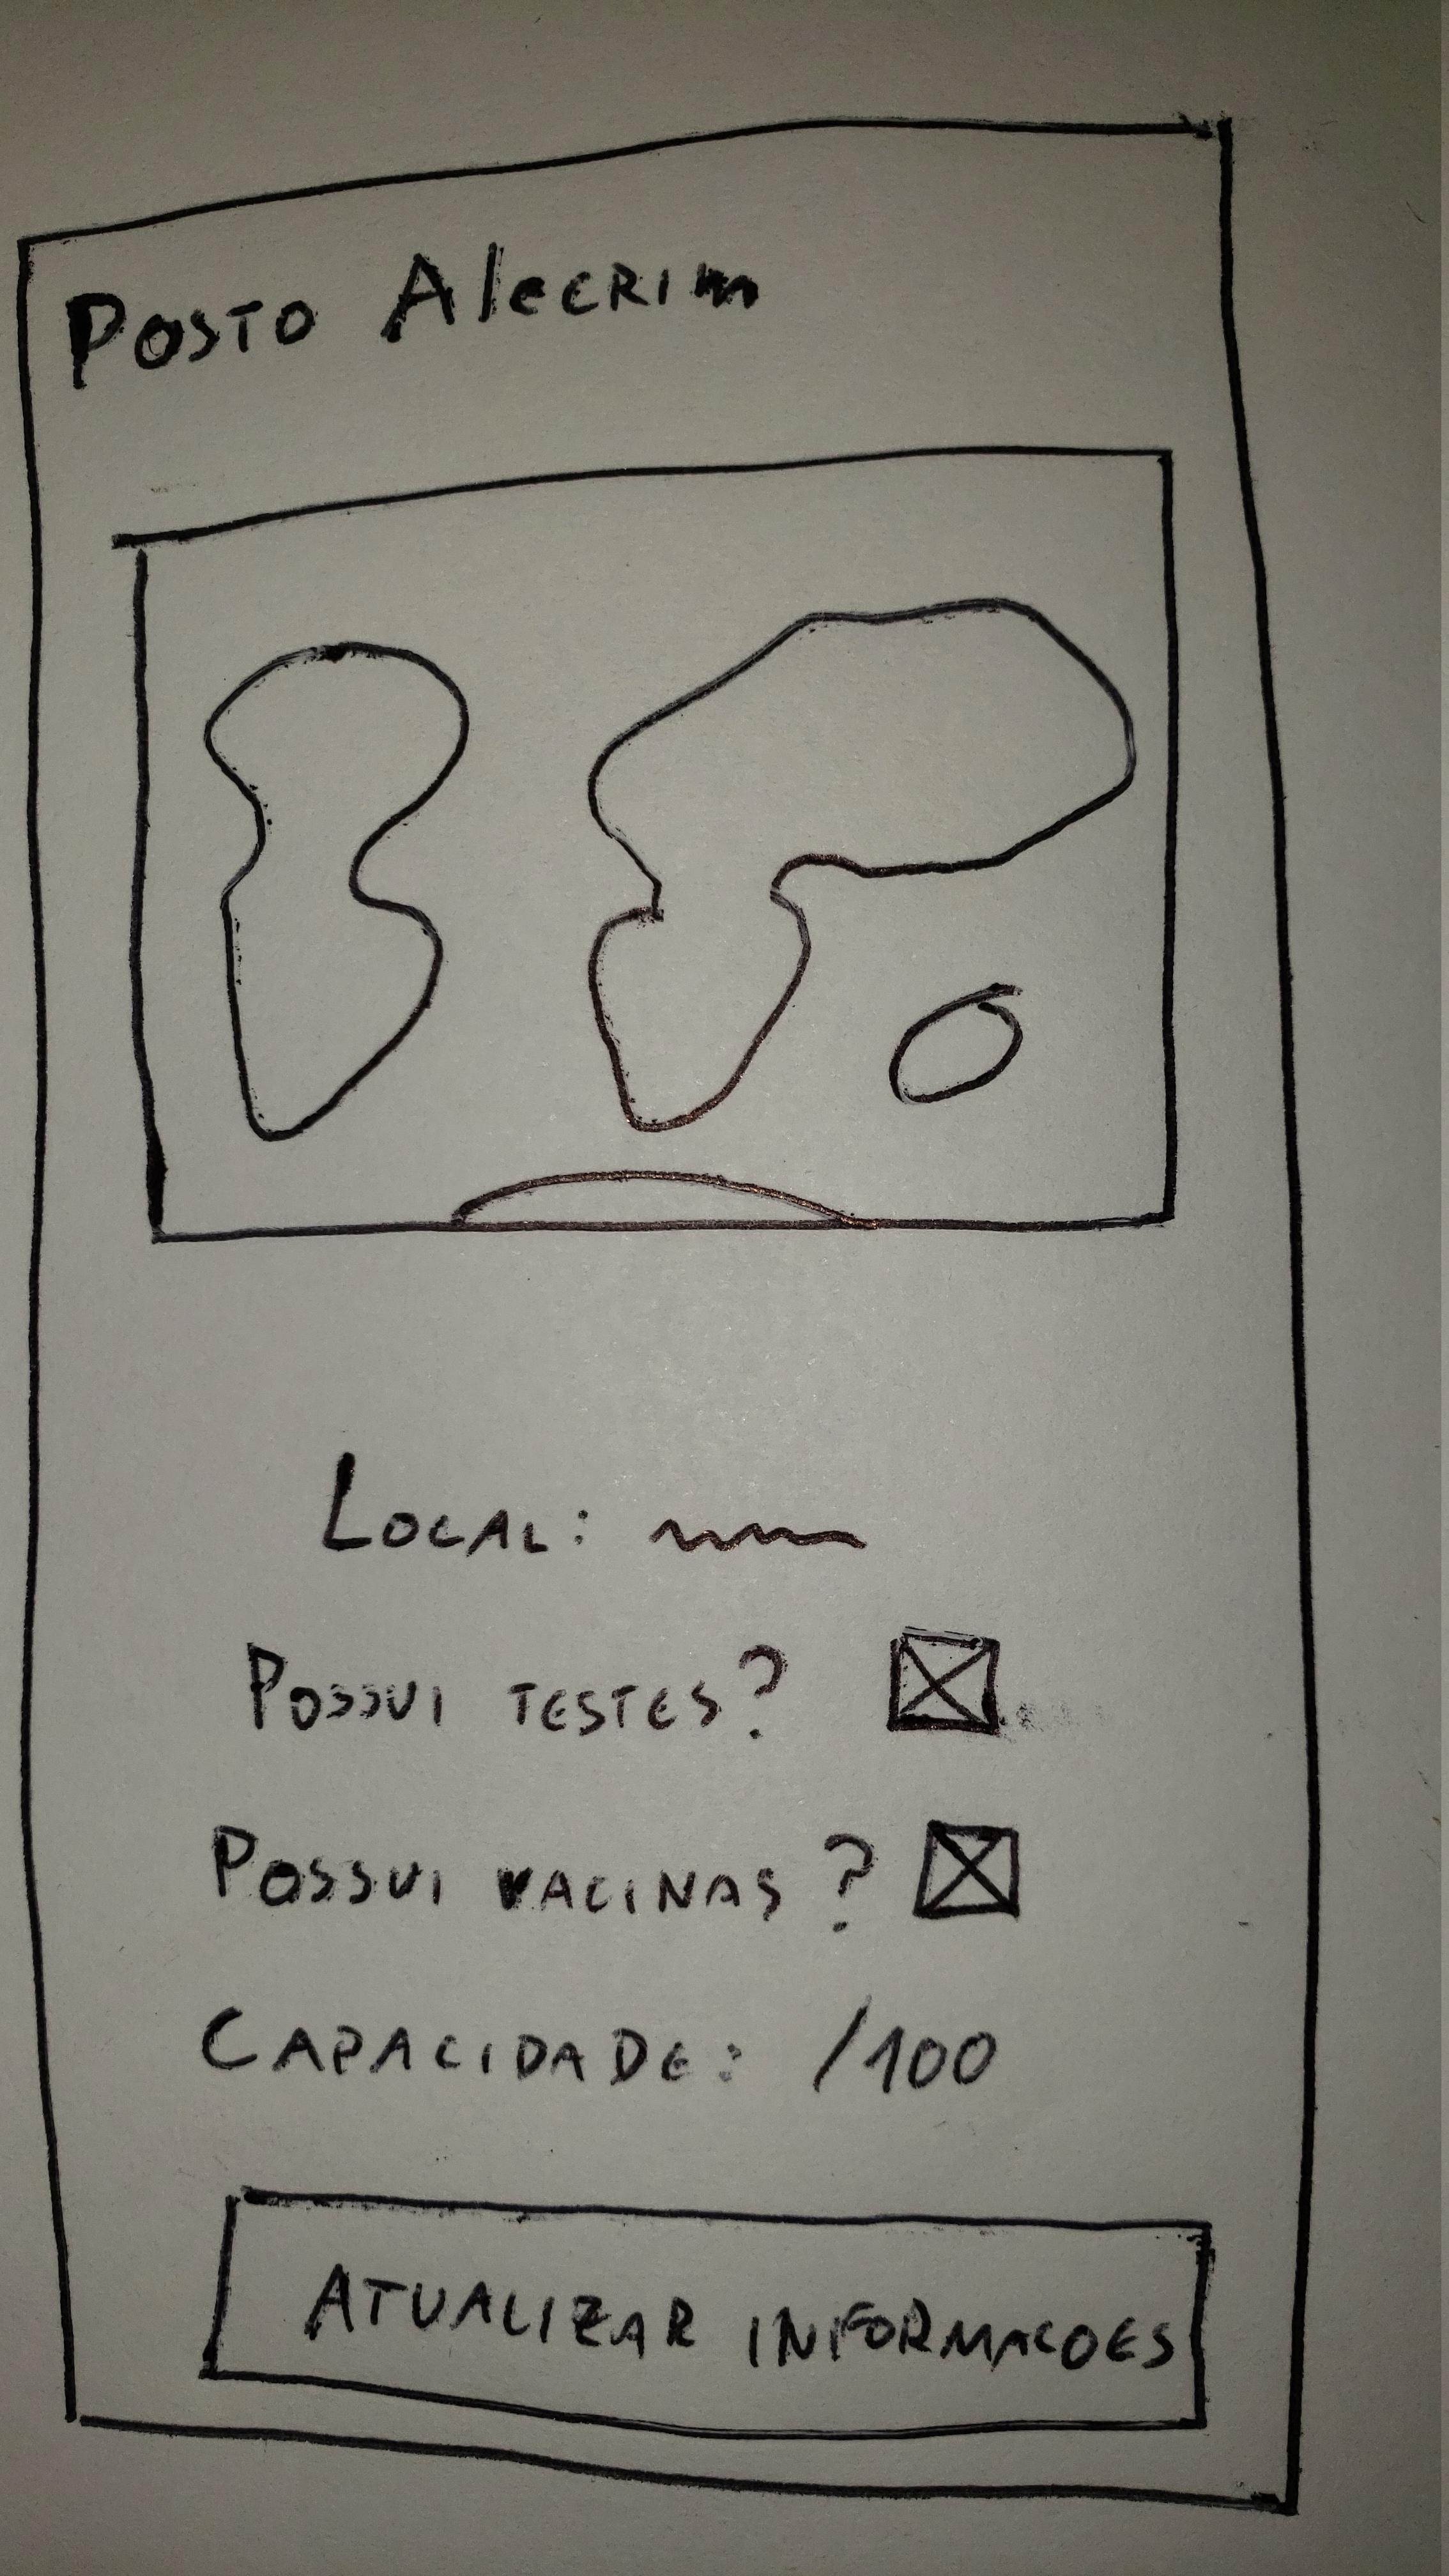 Posto Alecrim
Local:
Possui testes?
Possui vacinas?
Capacidade: /100
Atualizar informacoes